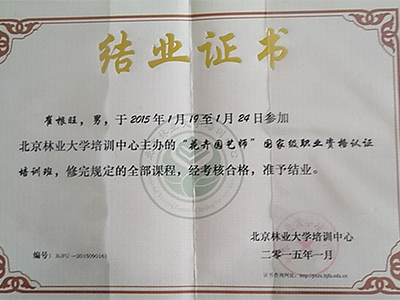 结业证书
崔根旺，男，于2015年1月19至1月24日参加
北京林业大学培训中心主办的“花卉园艺师”国家级职业资格认证
培训班，修完规定的全部课程，经考核合格，准予结业。
北京林业大学培训中心
二零一五年一月
编号：BJFU—2015090161
证书查询网址：